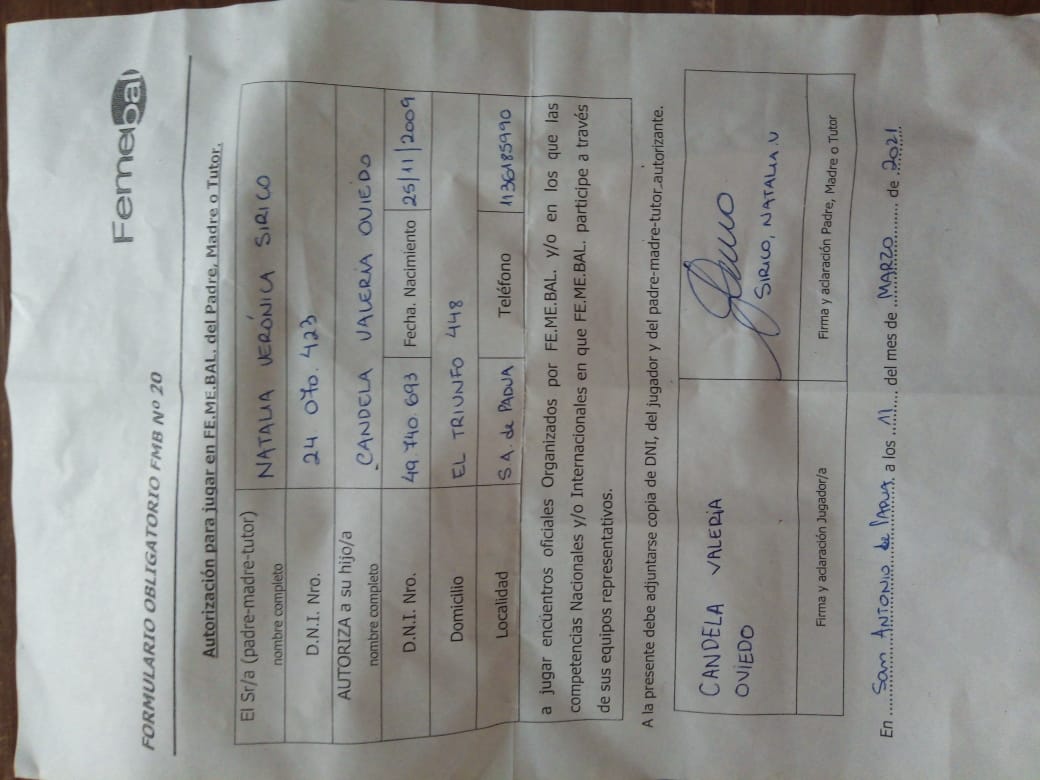 Femebal
FORMULARIO OBLIGATORIO FMB Nº 20
Autorización para jugar en FE.ME.BAL. del Padre, Madre o Tutor.
El Sr/a (padre-madre-tutor)
nombre completo
NATALIA VERÓNICA SIRICO
D.N.I. Nro.
24 070. 423
AUTORIZA a su hijo/a
nombre completo
CANDELA VALERIA OVIEDO
D.N.I. Nro. 49.740.693 Fecha. Nacimiento 25/11/2009
Domicilio EL TRIUNFO 448
Localidad S.A. de PADUA Teléfono 1136185990
a jugar encuentros oficiales Organizados por FE.ME.BAL. y/o en los que las
competencias Nacionales y/o Internacionales en que FE.ME.BAL. participe a través
de sus equipos representativos.
A la presente debe adjuntarse copia de DNI, del jugador y del padre-madre-tutor autorizante.
CANDELA VALERIA
OVIEDO
SIRICO, NATALIA.V
Firma y aclaración Jugador/a
Firma y aclaración Padre, Madre o Tutor
En San Antonio de PADUA a los 11 del mes de MARZO de 2021.